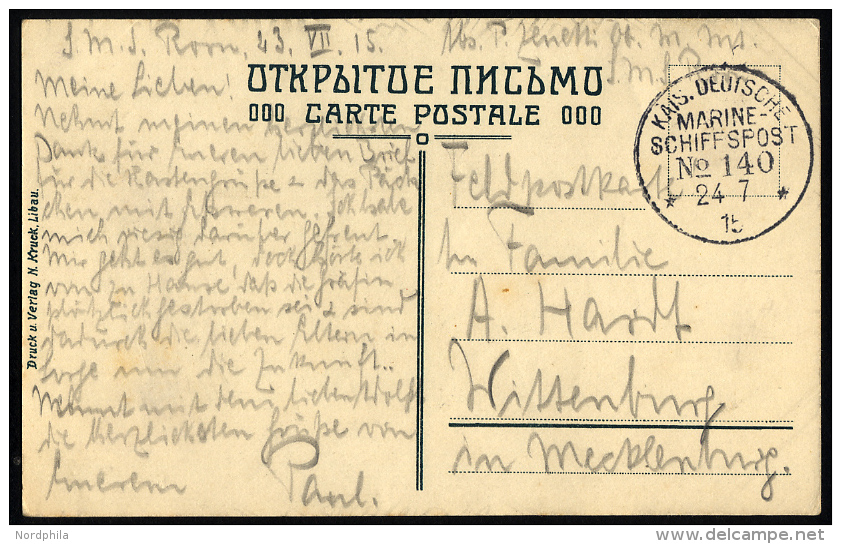 S. M. S. Roon, 23. VII. 15.
Abs. P. Zenetti Ob. M. Mt.
S. M. S.
ОТКРЫТОЕ ПИСЬМО
000 CARTE POSTALE 000
KAIS. DEUTSCHE
MARINE-
SCHIFFSPOST
No 140
* 24 7 *
15
Meine Lieben!
Nehmt meinen herzlichsten
Dank für Eueren lieben Brief
für die Kartengrüße & das Päck
chen mit Ich habe
mich riesig darüber gefreut
Mir geht es gut, doch hörte ich
von zu Hause, daß die Gräfin
plötzlich gestorben sei & sind
dadurch die lieben Eltern in
Sorge um die Zukunft..
Nehmt mit dem lieben Adolf
die herzlichsten Grüße von
Euerem Paul.
Feldpostkarte
An Familie
A. Hardt
Wittenburg
in Mecklenburg.
Druck u. Verlag N. Kruck, Libau.
Nordphila
delcampe.net